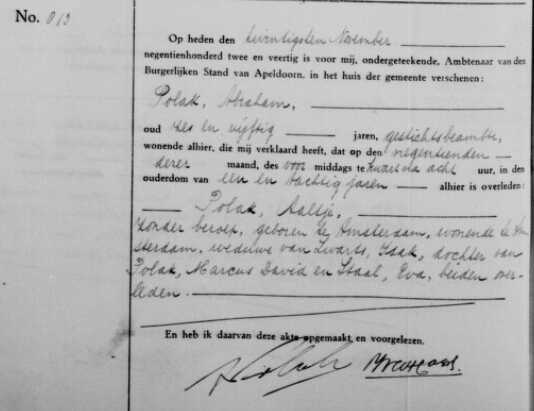 No. 813
Op heden den twintigsten November
negentienhonderd twee en veertig is voor mij, ondergeteekende, Ambtenaar van den
Burgerlijken Stand van Apeldoorn, in het huis der gemeente verschenen:
Polak, Abraham,
oud zes en vijftig jaren, gestichtsbeambte,
wonende alhier, die mij verklaard heeft, dat op den negentienden
dezer maand, des voor middags te kwart na acht uur, in den
ouderdom van een en tachtig jaren alhier is overleden:
Polak, Aaltje,
zonder beroep, geboren te Amsterdam, wonende te Am-
sterdam, weduwe van Zwarts, Izak, dochter van
Polak, Marcus David en Staal, Eva, beiden over-
leden.
En heb ik daarvan deze akte opgemaakt en voorgelezen.